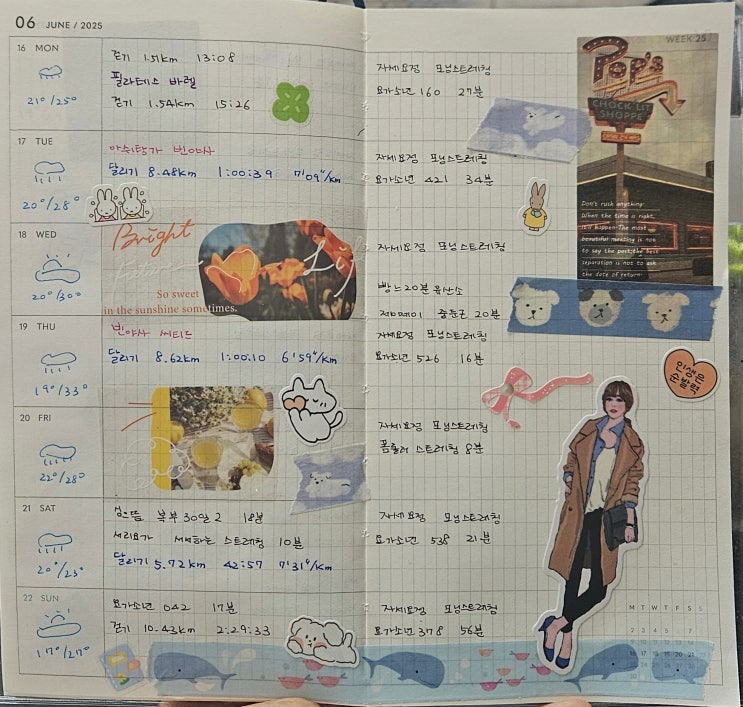 06 JUNE / 2025
16 MON
21°/25°
걷기 1.51km 13:08
필라테스 바렐
걷기 1.54km 15:26
17 TUE
20°/28°
아쉬탕가 빈야사
달리기 8.48km 1:00:39 7'09"/km
18 WED
20°/30°
Bright
So sweet
in the sunshine sometimes.
19 THU
19°/33°
빈야사
달리기 8.62km 1:00:10 6'59"/km
20 FRI
22°/28°
21 SAT
20°/23°
복부 30일 2 18분
스트레칭 10분
달리기 5.72km 42:57 7'31"/km
22 SUN
17°/27°
요가소년 042 17분
걷기 10.43km 2:29:33
WEEK 25
자세요정 모닝스트레칭
요가소년 160 27분
자세요정 모닝스트레칭
요가소년 421 34분
자세요정 모닝스트레칭
빵느 20분 유산소
중둔근 20분
자세요정 모닝스트레칭
요가소년 526 16분
자세요정 모닝스트레칭
폼롤러 스트레칭 8분
자세요정 모닝스트레칭
요가소년 538 21분
자세요정 모닝스트레칭
요가소년 378 56분
Pop's
CHOCK'LIT
SHOPPE
Don't rush anything.
When the time is right,
it'll happen. The most
beautiful meeting is not
to say the past, the best
separation is not to ask
the date of return.
인생은
순발력
M T W T F S S